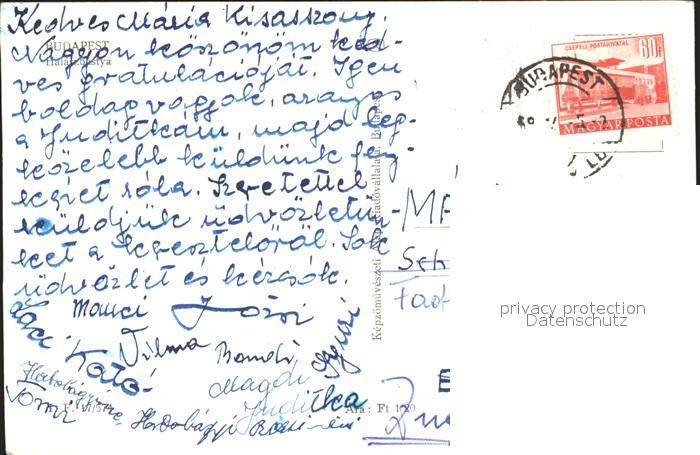 Kedves Mária Kisasszony.
BUDAPEST
Halászbástya
Nagyon köszönöm ked-
ves gratulációját. Igen
boldog vagyok, aranyos
a Juditkám, majd leg-
közelebb küldünk fény-
képet róla. Szeretettel
küldjük üdvözletün-
ket a keresztelőről. Sok
üdvözlet és kézcsók.
Manci Józsi
Laci Kató Vilma Bandi Gyuri
Magdi
Juditka
Tomi
Hortobágyi
Képzőművészeti Alap Kiadóvállalata, Budapest
Ára: Ft 1.20
CSEPELI POSTAHIVATAL
60f
MAGYAR POSTA
BUDAPEST
MÁ
Sch
privacy protection
Datenschutz